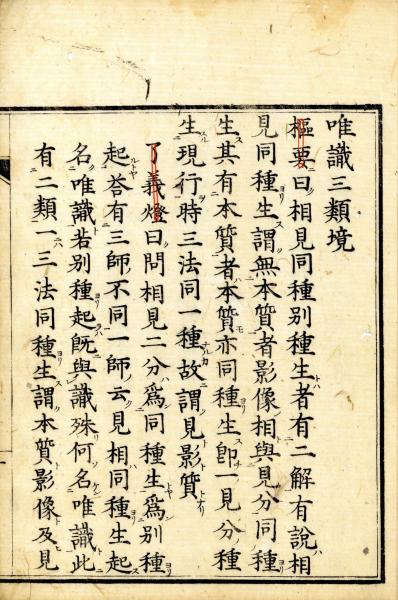 唯識三類境
樞要曰相見同種別種生者有二解有說相
見同種生謂無本質者影像相與見分同種
生其有本質者本質亦同種生卽一見分種
生現行時三法同一種故謂見影質
了義燈曰問相見二分爲同種生爲別種
起荅有三師不同一師云見相同種生起
名唯識若別種起旣與識殊何名唯識此
有二類一三法同種生謂本質影像及見